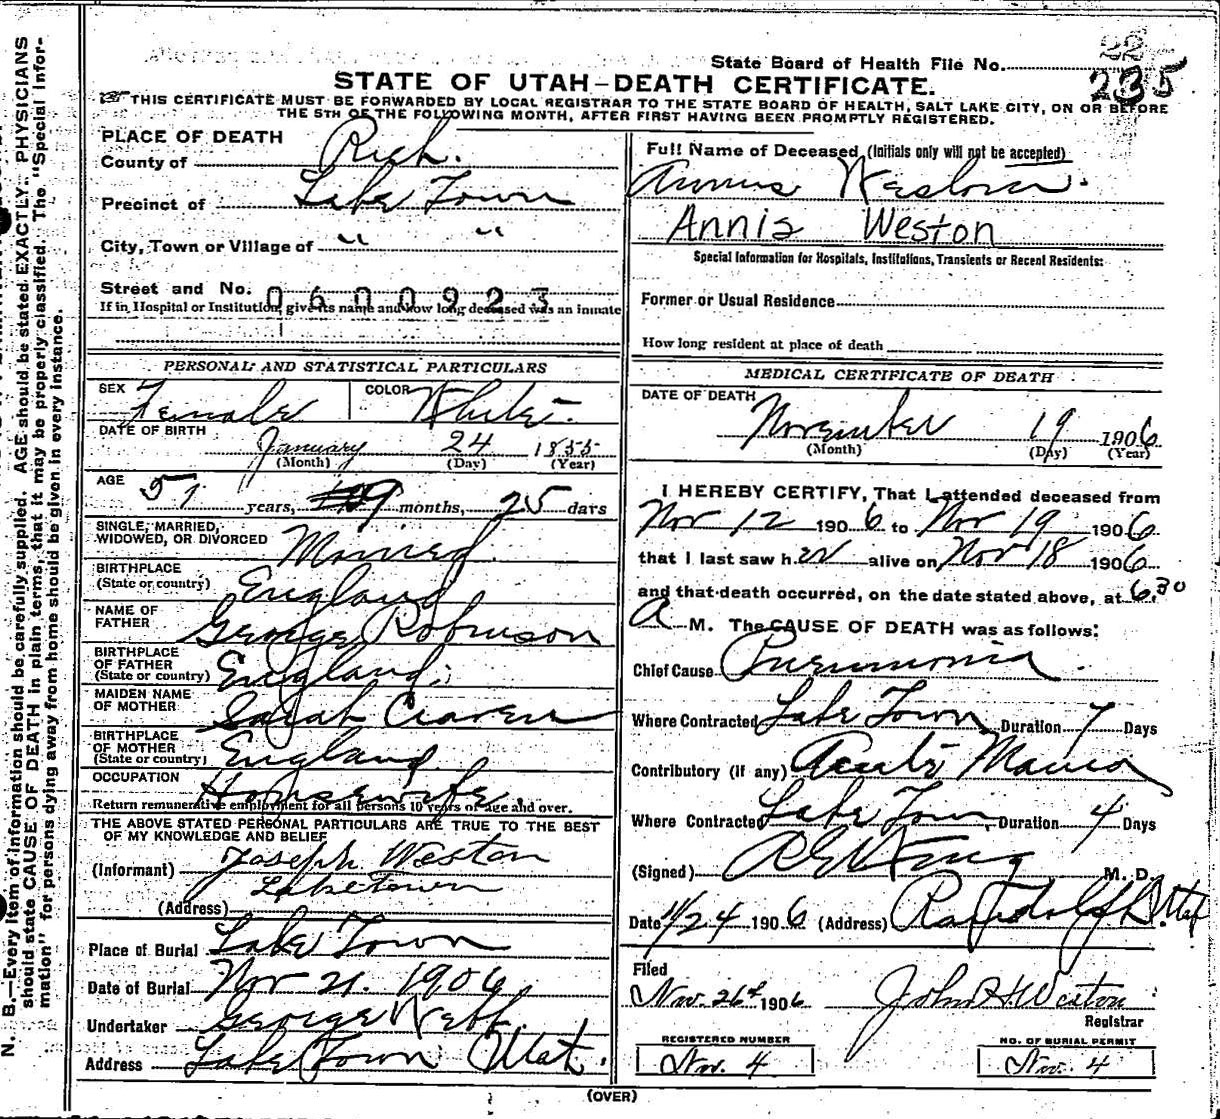 N. B.—Every item of information should be carefully supplied. AGE should be stated EXACTLY. PHYSICIANS
should state CAUSE OF DEATH in plain terms, that it may be properly classified. The "Special Infor-
mation" for persons dying away from home should be given in every instance.
State Board of Health File No.
22
235
STATE OF UTAH—DEATH CERTIFICATE.
THIS CERTIFICATE MUST BE FORWARDED BY LOCAL REGISTRAR TO THE STATE BOARD OF HEALTH, SALT LAKE CITY, ON OR BEFORE
THE 5TH OF THE FOLLOWING MONTH, AFTER FIRST HAVING BEEN PROMPTLY REGISTERED.
PLACE OF DEATH
County of Rich.
Precinct of Lake Town
City, Town or Village of " "
Street and No. 0600923
If in Hospital or Institution, give its name and how long deceased was an inmate
PERSONAL AND STATISTICAL PARTICULARS
SEX Female COLOR White
DATE OF BIRTH
January 24 1855
(Month) (Day) (Year)
AGE 51 years, 9 months, 25 days
SINGLE, MARRIED,
WIDOWED, OR DIVORCED Married
BIRTHPLACE
(State or country) England
NAME OF
FATHER George Robinson
BIRTHPLACE
OF FATHER
(State or country) England
MAIDEN NAME
OF MOTHER Sarah Craven
BIRTHPLACE
OF MOTHER
(State or country) England
OCCUPATION Housewife.
Return remunerative employment for all persons 10 years of age and over.
THE ABOVE STATED PERSONAL PARTICULARS ARE TRUE TO THE BEST
OF MY KNOWLEDGE AND BELIEF
(Informant) Joseph Weston
Laketown
(Address)
Place of Burial Lake Town
Date of Burial Nov 21. 1906
Undertaker George Webb.
Address Lake Town Utah.
Full Name of Deceased (Initials only will not be accepted)
Weston.
Annis Weston
Special Information for Hospitals, Institutions, Transients or Recent Residents:
Former or Usual Residence
How long resident at place of death
MEDICAL CERTIFICATE OF DEATH
DATE OF DEATH
November 19 1906
(Month) (Day) (Year)
I HEREBY CERTIFY, That I attended deceased from
Nov 12 1906 to Nov 19 1906
that I last saw her alive on Nov 18 1906
and that death occurred, on the date stated above, at 6.30
A M. The CAUSE OF DEATH was as follows:
Chief Cause Pneumonia.
Where Contracted Lake Town Duration 7 Days
Contributory (if any) Acute Mania
Where Contracted Lake Town Duration 4 Days
(Signed) M. D.
Date 11/24 1906 (Address) Randolph Utah
Filed
Nov. 26th 1906 John H. Weston
Registrar
REGISTERED NUMBER
Nov. 4
NO. OF BURIAL PERMIT
Nov. 4
(OVER)